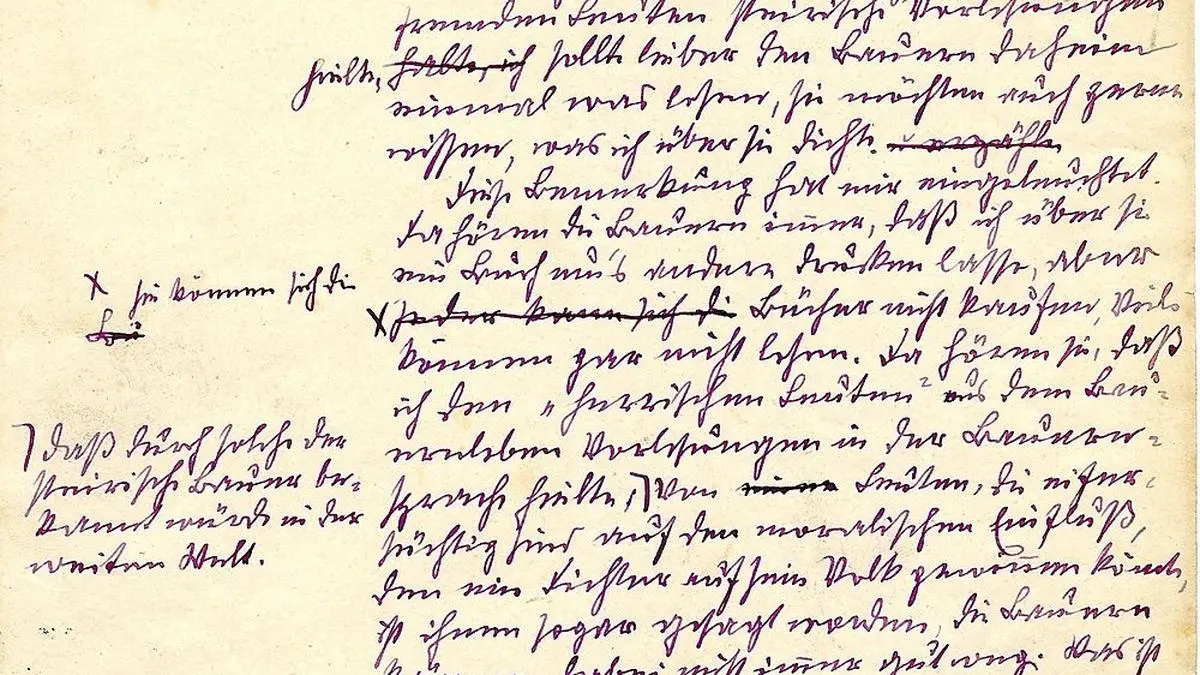 fremden Leuten steirische Vorlesungen
hielte, habe, ich sollte lieber den Bauern daheim
einmal was lesen, sie möchten auch gerne
wissen, was ich über sie dichte. u erzähle
Diese Bemerkung hat mir eingeleuchtet.
Da hören die Bauern immer, daß ich über sie
ein Buch ums andere drucken lasse, aber
x sie können sich die
Bü
x Jeder kann sich die Bücher nicht kaufen, Viele
können gar nicht lesen. Da hören sie, daß
ich den „herrischen Leuten" aus dem Bau-
ernleben Vorlesungen in der Bauern-
sprache hielte,) Von meinen Leuten, die eifer-
süchtig sind auf den moralischen Einfluß,
den ein Dichter auf sein Volk gewinnen könnte,
ist ihnen sogar gesagt worden, die Bauern
kämen dabei nicht immer gut weg. Was ist
) daß durch solche der
steirische Bauer be-
kannt würde in der
weiten Welt.